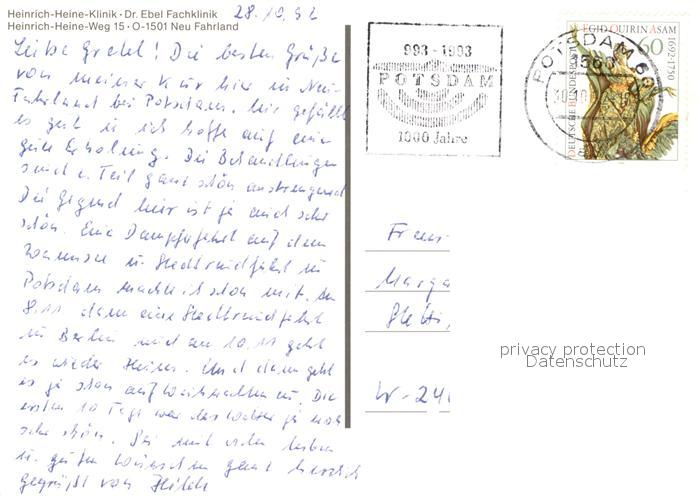 Heinrich-Heine-Klinik · Dr. Ebel Fachklinik
Heinrich-Heine-Weg 15 · O-1501 Neu Fahrland
28.10.92
Liebe Gretel! Die besten Grüße
von meiner Kur hier in Neu-
Fahrland bei Potsdam. Mir gefällt
es gut u. ich hoffe auf eine
gute Erholung. Die Behandlungen
sind z. Teil ganz schön anstrengend
Die Gegend hier ist ja auch sehr
schön. Eine Dampferfahrt auf dem
Wannsee u. Stadtrundfahrt in
Potsdam machte ich schon mit. Am
8.11 dann eine Stadtrundfahrt
in Berlin und am 10.11 geht
es wieder Heim. Und dann geht
es ja schon auf Weihnachten zu. Die
ersten 10 Tage war das Wetter ja noch
sehr schön. Sei mit vielen lieben
u. guten Wünschen ganz herzlich
gegrüßt von
993-1993
POTSDAM
1000 Jahre
POTSDAM
1560
EGID QUIRIN ASAM
1692-1750
60
DEUTSCHE BUNDESPOST
Frau
Marga
W-24
privacy protection
Datenschutz